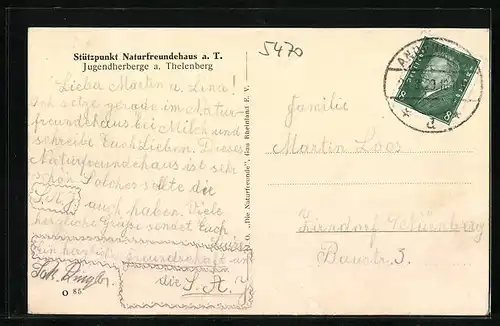 Stützpunkt Naturfreundehaus a. T.
Jugendherberge a. Thelenberg
5470
Lieba Martin u. Lina!
Ich sitze gerade im Natur-
freundehaus bei Milch und
schreibe Euch Lieben. Dieses
Naturfreundehaus ist sehr
schön. Solches sollte die
S.A.J. auch haben. Viele
herzliche Grüße sendet Euch
Ein herzliche Freundschaft an
die S. A. J.
O 85
T. O. „Die Naturfreunde", Gau Rheinland E. V.
Familie
Martin Loos
Zirndorf b/Nürnberg
Baustr. 5.
8 8